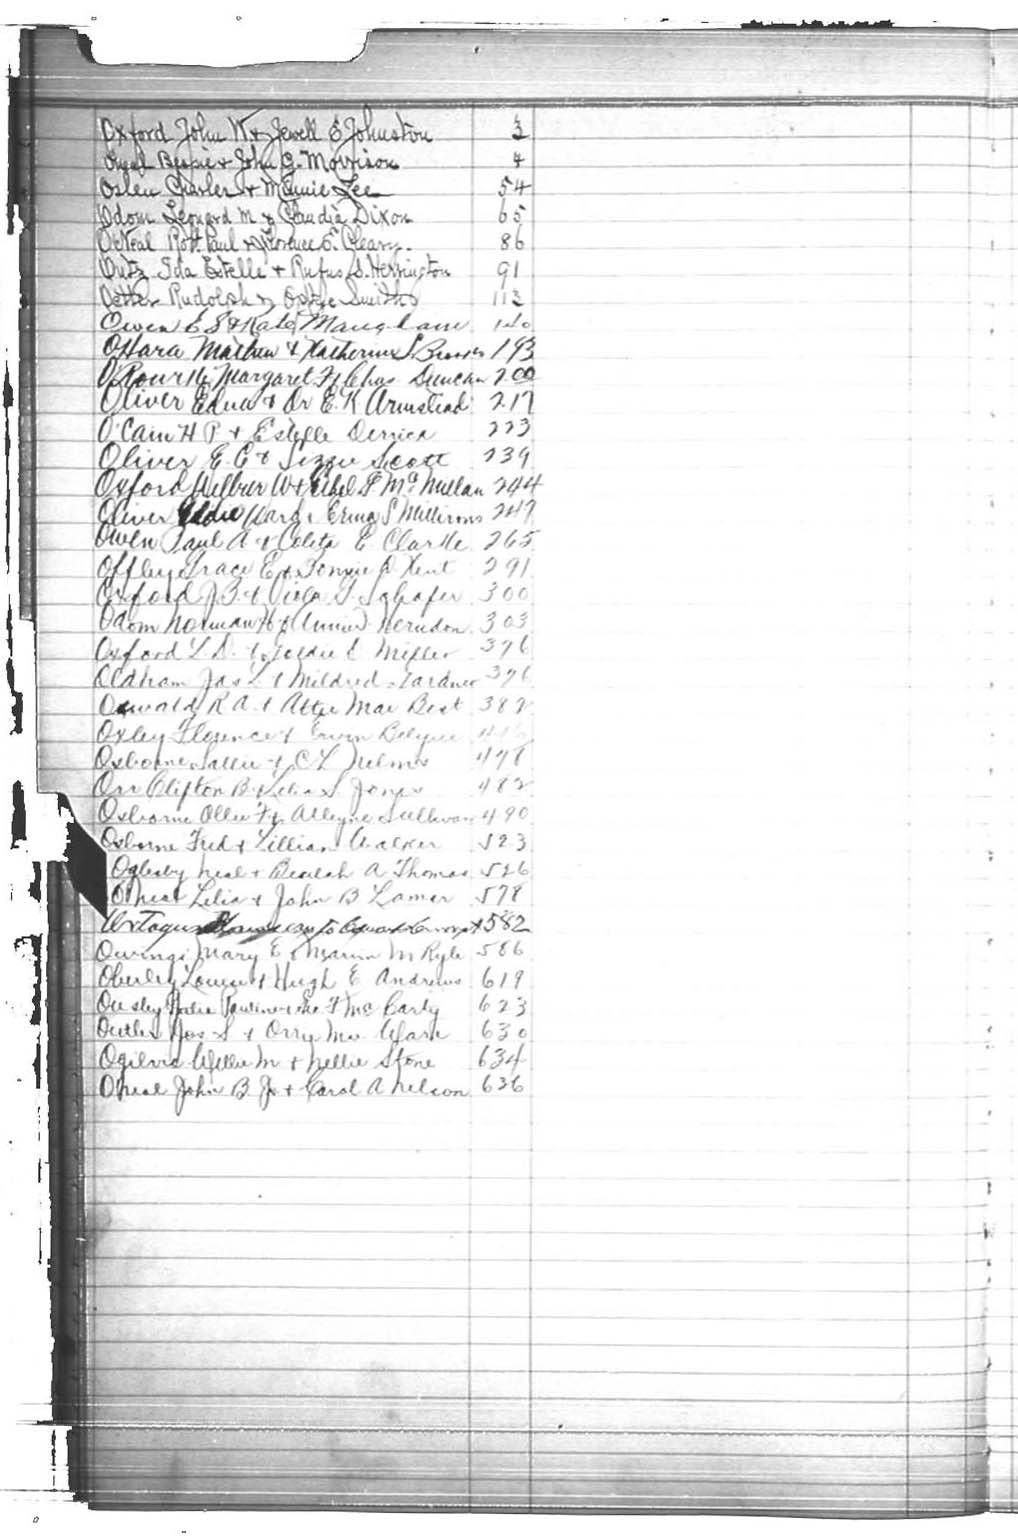 Oxford John W & Jewell E Johnston 3
Bessie & John G. Morrison 4
Oslen Charles & Minnie Lee 54
Odom Leonard M & Claudia Dixon 65
O'Neal Robt. Paul & Florence E. Cleary. 86
Outz Ida Estelle & Rufus S. Herrington 91
Oetter Rudolph & Smith 112
Owen E S & Kate Maugham 140
O'Hara Mathew & Katherine S. 193
O'Rourke Margaret F & Chas Duncan 200
Oliver Edna & Dr E. K Armstead 217
O'Cain H P. & Estelle Derrick 223
Oliver E. C & Lizzie Scott 239
Oxford Wilbur W & Ethel F McMullan 244
Oliver Eddie Ward & Erma S Millirons 247
Owen Paul A & Coleta E Clarke 265
Offley Grace E & Tommie D Kent 291
Oxford J. B. & Viola T Schafer 300
Odom Norman H & Annie D. Herndon 303
Oxford L D. & Goldie S Miller 376
Oldham Jas L & Mildred Gardner 376
Oswald R A. & Attie Mae Best 382
Oxley Florence & Ervin
Osborne Sallie & C L Helms 478
Orr Clifton B & Lelia S. Jones 482
Osborne Ollie F & Alleyne Sullivan 490
Osborne Fred & Lillian Walker 523
Oglesby Neal & Beulah A Thomas 526
O'Neal Lelia & John B Lamar 578
582
Owings Mary E & Marion M Ryle 586
Oberley Louise & Hugh E Andrews 619
Ousley Pauline & F McCarty 623
Outler Jos S & Orry Mae Ware 630
Ogilvie Willie M & Nellie Stone 634
Oneal John B. Jr & Carol A Nelson 636